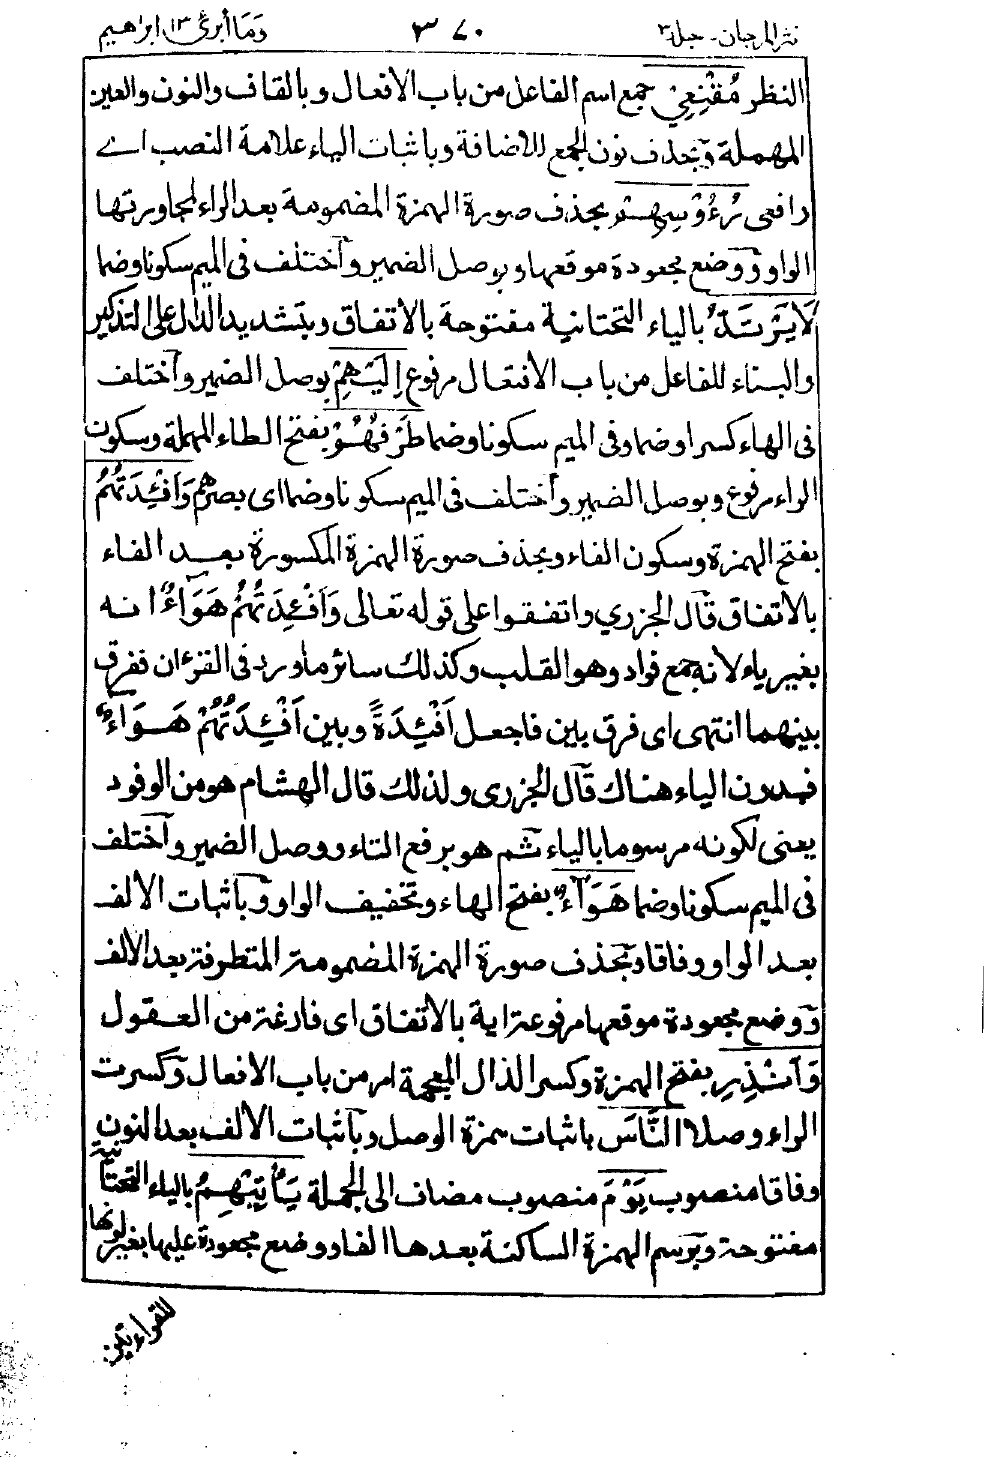 نثر المرجان - جلد ٣ ٣٧٠ وَمَا أبرئ ١٣ ابراهيم
النظر مُقْنِعِيْ جمع اسم الفاعل من باب الافعال وبالقاف والنون والعين
المهملة وبحذف نون الجمع للاضافة وباثبات الياء علامة النصب اے
رافعی رُءُوْسِهِمْ بحذف صورة الهمزة المضمومة بعد الراء لمجاورتها
الواو ووضع مجعودة موقعها وبوصل الضمير وآختلف فى الميم سكونا وضما
لَا يَرْتَدُّ بالياء التحتانية مفتوحة بالاتفاق وبتشديد الدال على التذكير
والبناء للفاعل من باب الافتعال مرفوع إِلَيْهِمْ بوصل الضمير وآختلف
فى الهاء كسرا وضما وفى الميم سكونا وضما طَرْفُهُمْ بفتح الطاء المهملة وسكون
الراء مرفوع وبوصل الضمير وآختلف فى الميم سكونا وضما اى بصرهم وَأَفْئِدَتُهُمْ
بفتح الهمزة وسكون الفاء وبحذف صورة الهمزة المكسورة بعد الفاء
بالاتفاق قآل الجزري واتفقوا على قوله تعالى وَأَفْئِدَتُهُمْ هَوَآءٌ انه
بغير ياء لانه جمع فواد وهو القلب وكذلك سائر ما ورد فى القرءان ففرق
بينهما انتهى اى فرق بين فاجعل اَفْئِدَةً وبين اَفْئِدَتُهُمْ هَوَآءٌ
فبدون الياء هناك قآل الجزرى ولذلك قال الهشام هو من الوفود
يعنى لكونه مرسوما بالياء ثم هو برفع التاء ووصل الضمير وآختلف
فى الميم سكونا وضما هَوَآءٌ بفتح الهاء وتخفيف الواو وبآثبات الالف
بعد الواو وفاقا وبحذف صورة الهمزة المضمومة المتطرفة بعد الالف
ووضع مجعودة موقعها مرفوعة اية بالاتفاق اى فارغة من العقول
وَأَنْذِرِ بفتح الهمزة وكسر الذال المعجمة امر من باب الافعال وكسرت
الراء وصلا النَّاسَ باثبات همزة الوصل وبآثبات الالف بعد النون
وفاقا منصوب يَوْمَ منصوب مضاف الى الجملة يَأْتِيْهِمُ بالياء التحتانية
مفتوحة وبرسم الهمزة الساكنة بعدها الفا ووضع مجعودة عليها بغير لونها
للقراءتين